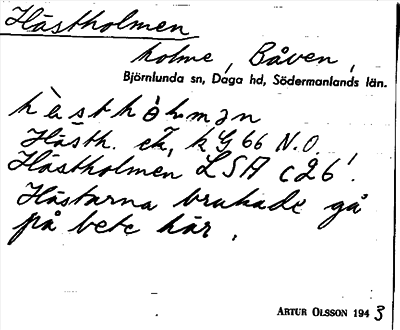 Hästholmen
holme, Båven,
Björnlunda sn, Daga hd, Södermanlands län.
hästhòlmən
Hästh. ek, kG 66 N.O.
Hästholmen LSA c26!
Hästarna brukade gå
på bete här.
ARTUR OLSSON 1943